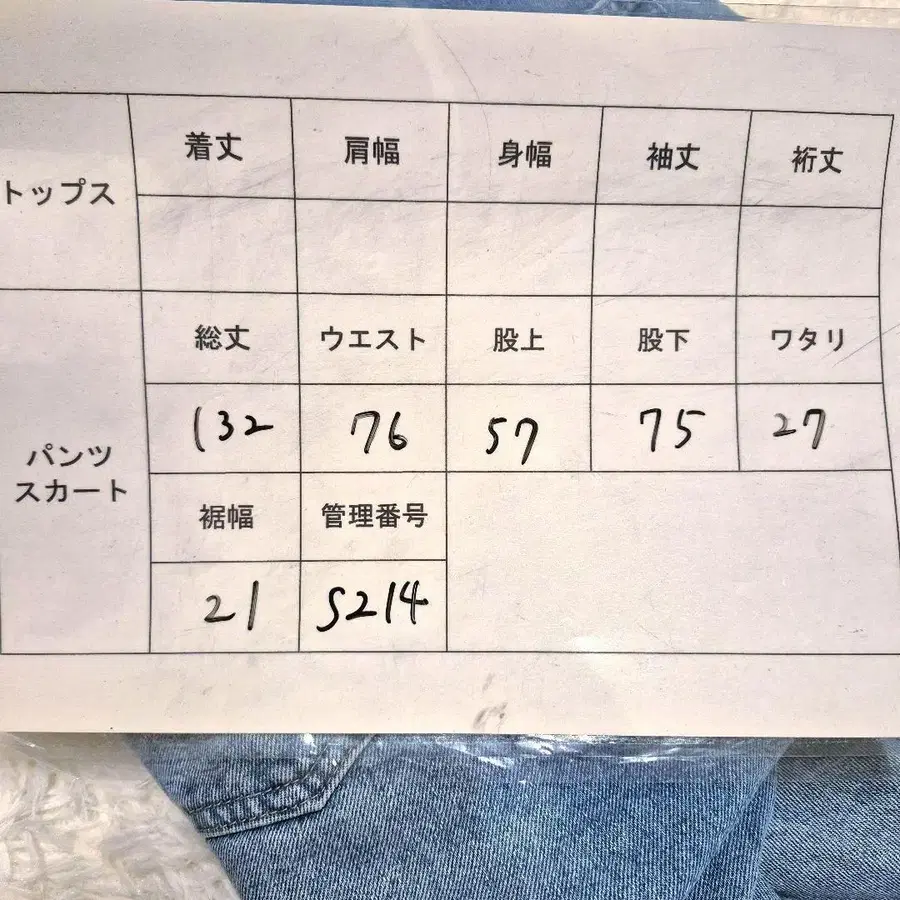 着丈 肩幅 身幅 袖丈 裄丈
トップス
総丈 ウエスト 股上 股下 ワタリ
132 76 57 75 27
パンツ
スカート
裾幅 管理番号
21 S214